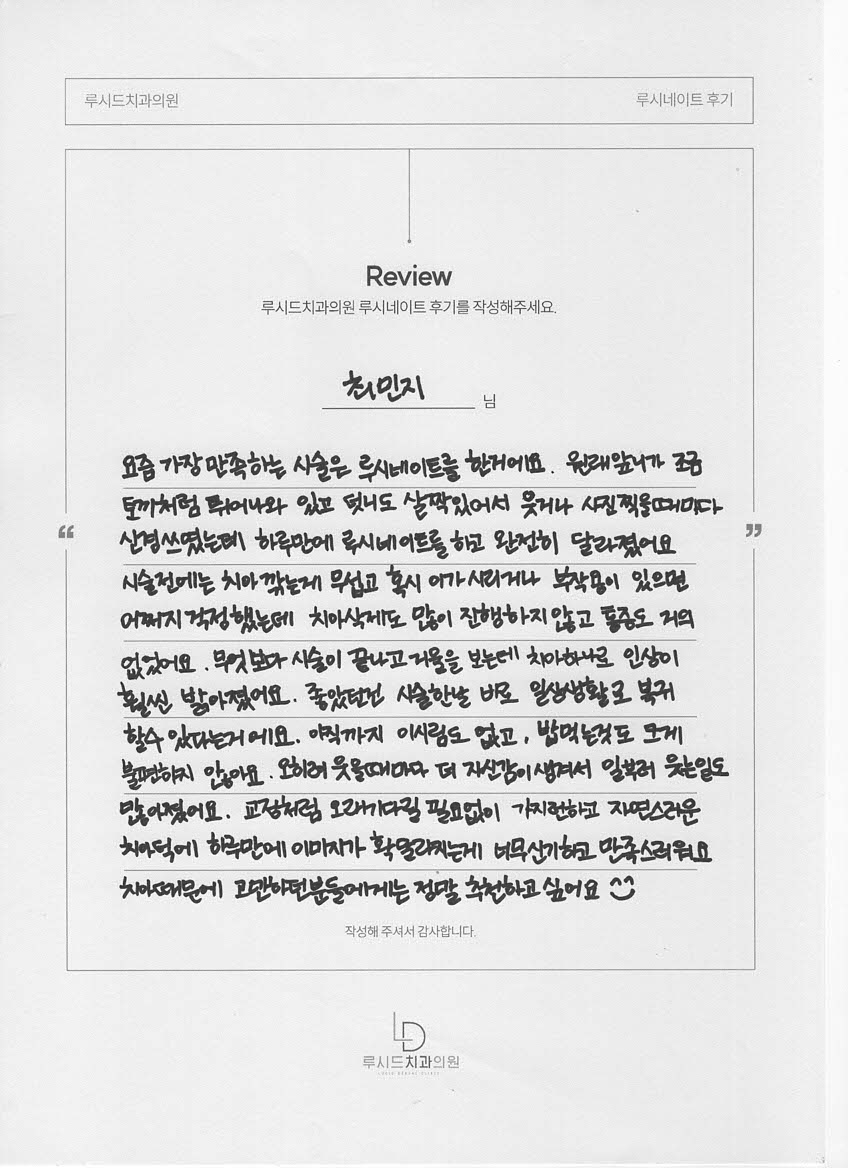 루시드치과의원
루시네이트 후기
Review
루시드치과의원 루시네이트 후기를 작성해주세요.
최민지 님
요즘 가장 만족하는 시술은 루시네이트를 한거에요. 원래 앞니가 조금
토끼처럼 튀어나와 있고 덧니도 살짝있어서 웃거나 사진찍을때마다
신경쓰였는데 하루만에 루시네이트를 하고 완전히 달라졌어요
시술전에는 치아 깎는게 무섭고 혹시 이가 시리거나 부작용이 있으면
어쩌지 걱정했는데 치아삭제도 많이 진행하지 않고 통증도 거의
없었어요. 무엇보다 시술이 끝나고 거울을 보는데 치아하나로 인상이
훨씬 밝아졌어요. 좋았던건 시술한날 바로 일상생활로 복귀
할수 있다는거에요. 아직까지 이시림도 없고, 밥먹는것도 크게
불편하지 않아요. 오히려 웃을때마다 더 자신감이 생겨서 일부러 웃는일도
많아졌어요. 교정처럼 오래기다릴 필요없이 가지런하고 자연스러운
치아덕에 하루만에 이미지가 확 달라지는게 너무신기하고 만족스러워요
치아때문에 고민하던분들에게는 정말 추천하고 싶어요
“ ”
작성해 주셔서 감사합니다.
LD
루시드치과의원